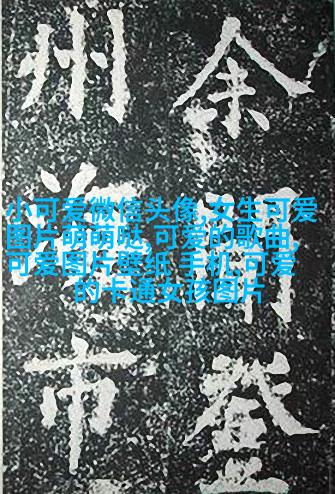 小可爱微信头像,女生可爱
图片萌萌哒,可爱的歌曲,
可爱图片壁纸 手机,可爱
的卡通女孩图片
余登
州市